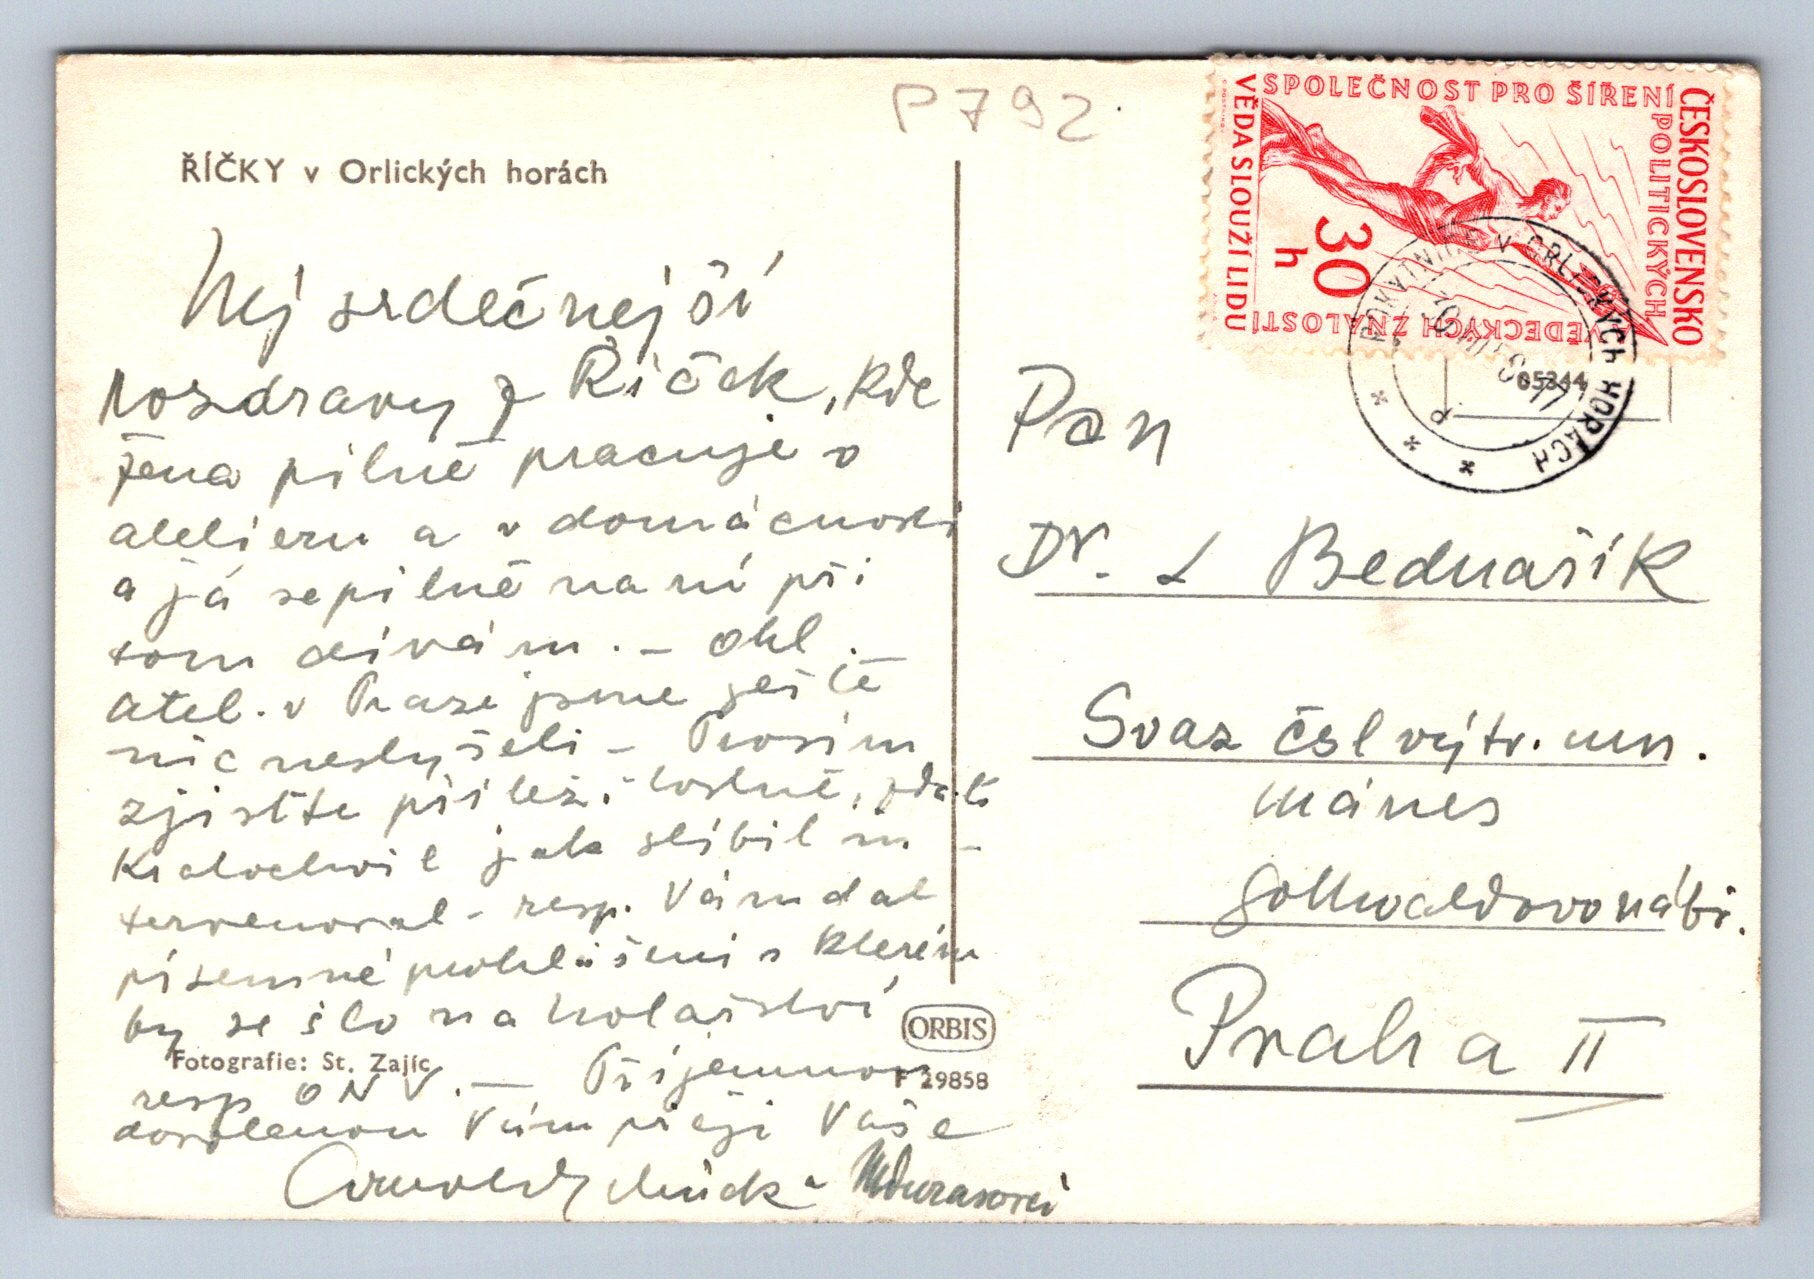 P792
ŘÍČKY v Orlických horách
Nejsrdečnejší
pozdravy z Říček, kde
žena pilně pracuje v
atelieru a v domácnosti
a já se pilně na ní při
tom dívám. – Ohl.
atel. v Praze jsme ještě
nic neslyšeli – Prosím
zjistěte příležitostně, zda-li
Kratochvil jak slíbil in-
tervenoval – resp. Vám dal
písemné prohlášení s kterém
by se šlo na kolářství
resp ONV. — Příjemnou
dovolenou Vám přejí Vaše
Fotografie: St. Zajíc
ORBIS
F 29858
ČESKOSLOVENSKO
SPOLEČNOST PRO ŠÍŘENÍ
POLITICKÝCH
VĚDECKÝCH ZNALOSTÍ
VĚDA SLOUŽÍ LIDU
30 h
ROKYTNICE V ORLICKÝCH HORÁCH
05344
Pan
Dr. L Bednařík
Svaz čsl výtv. um.
Mánes
Gottwaldovo nábř.
Praha II